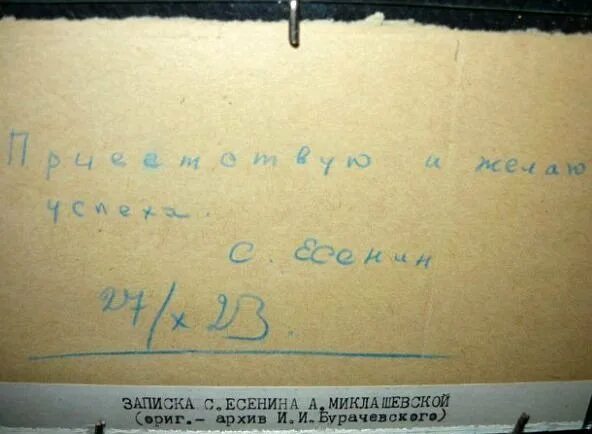 Приветствую и желаю
успеха.
С. Есенин
27/x 23.
ЗАПИСКА С.ЕСЕНИНА А.МИКЛАШЕВСКОЙ
(ориг.- архив И.И.Бурачевского)